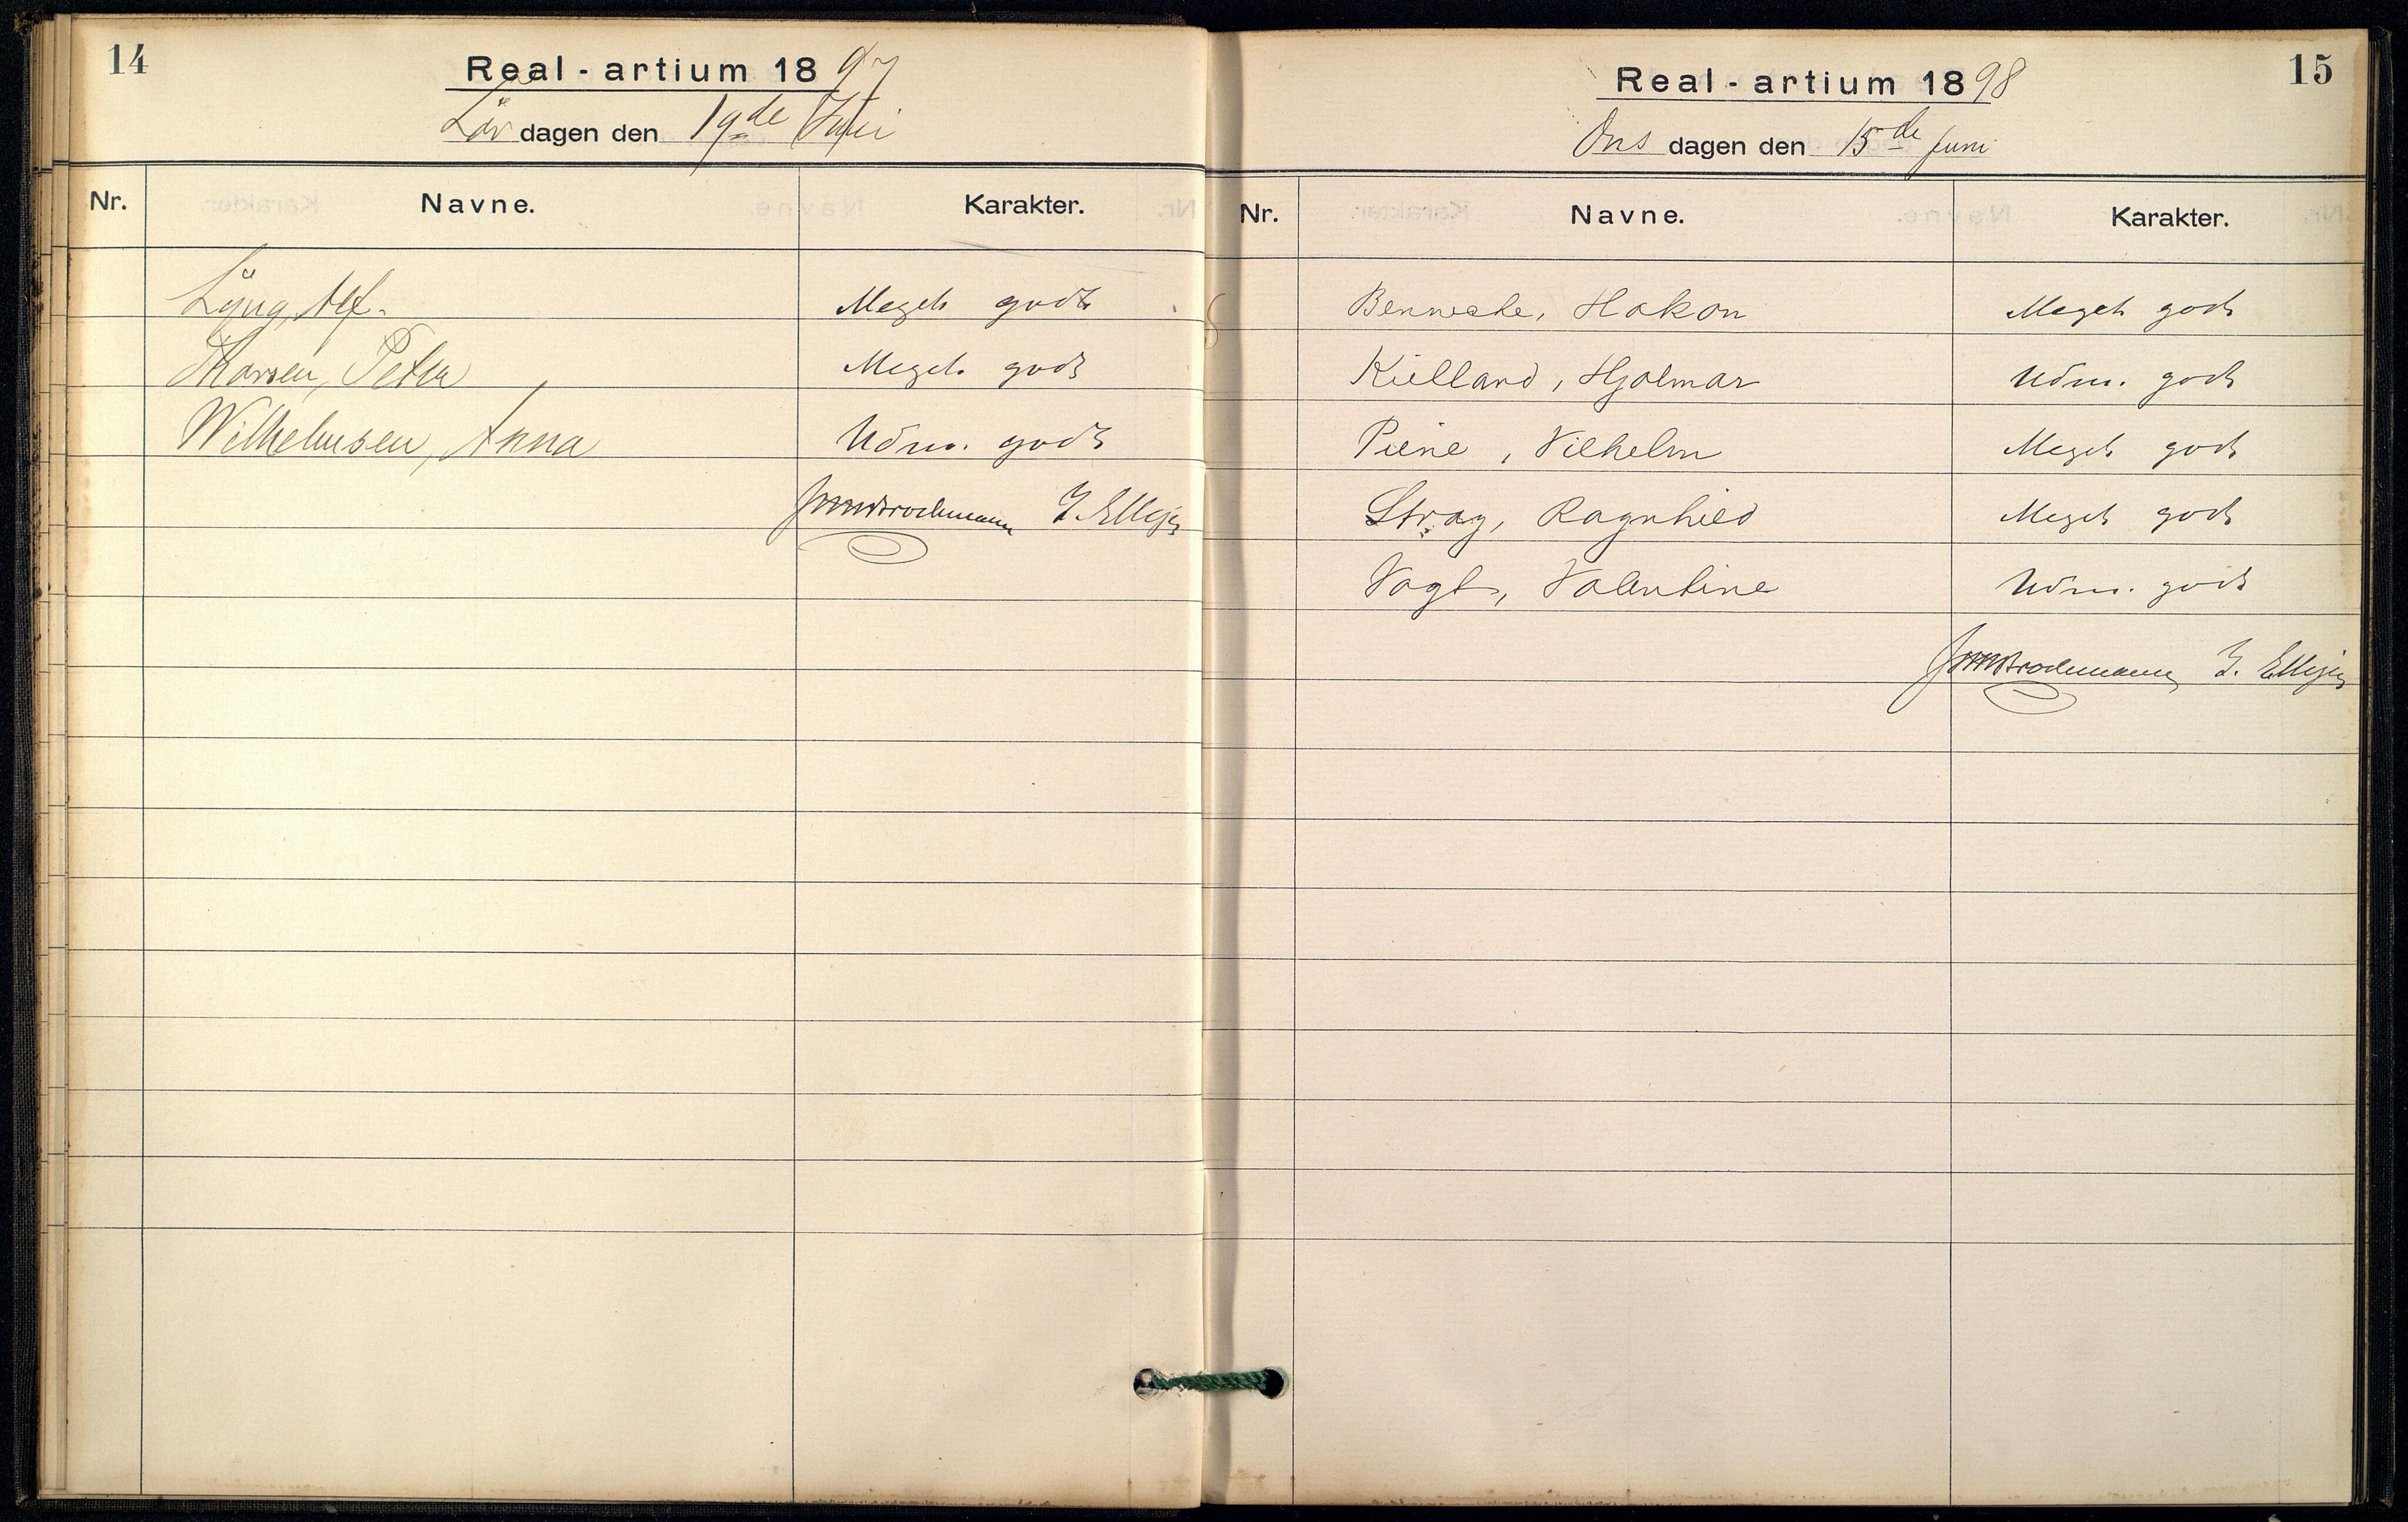 14
Real-artium 1897
Lördagen den 19de Juni
Nr. Navne. Karakter.
Lÿng, Alf. Meget godt
Thorsen, Petra Meget godt
Wilhelmsen, Anna Udm. godt
Brochmann
15
Real-artium 1898
Onsdagen den 15de Juni
Nr. Navne. Karakter.
Benneche, Hakon Meget godt
Kielland, Hjalmar Udm. godt
Piene, Vilhelm Meget godt
Stray, Ragnhild Meget godt
Vogt, Valentine Udm. godt
Brochmann